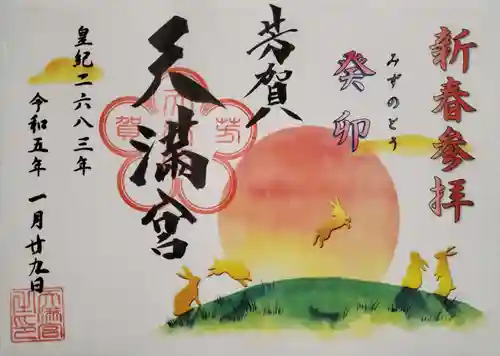 新春参拝
みずのとう
癸卯
芳賀
天満宮
皇紀二六八三年
令和五年 一月廿九日
芳賀